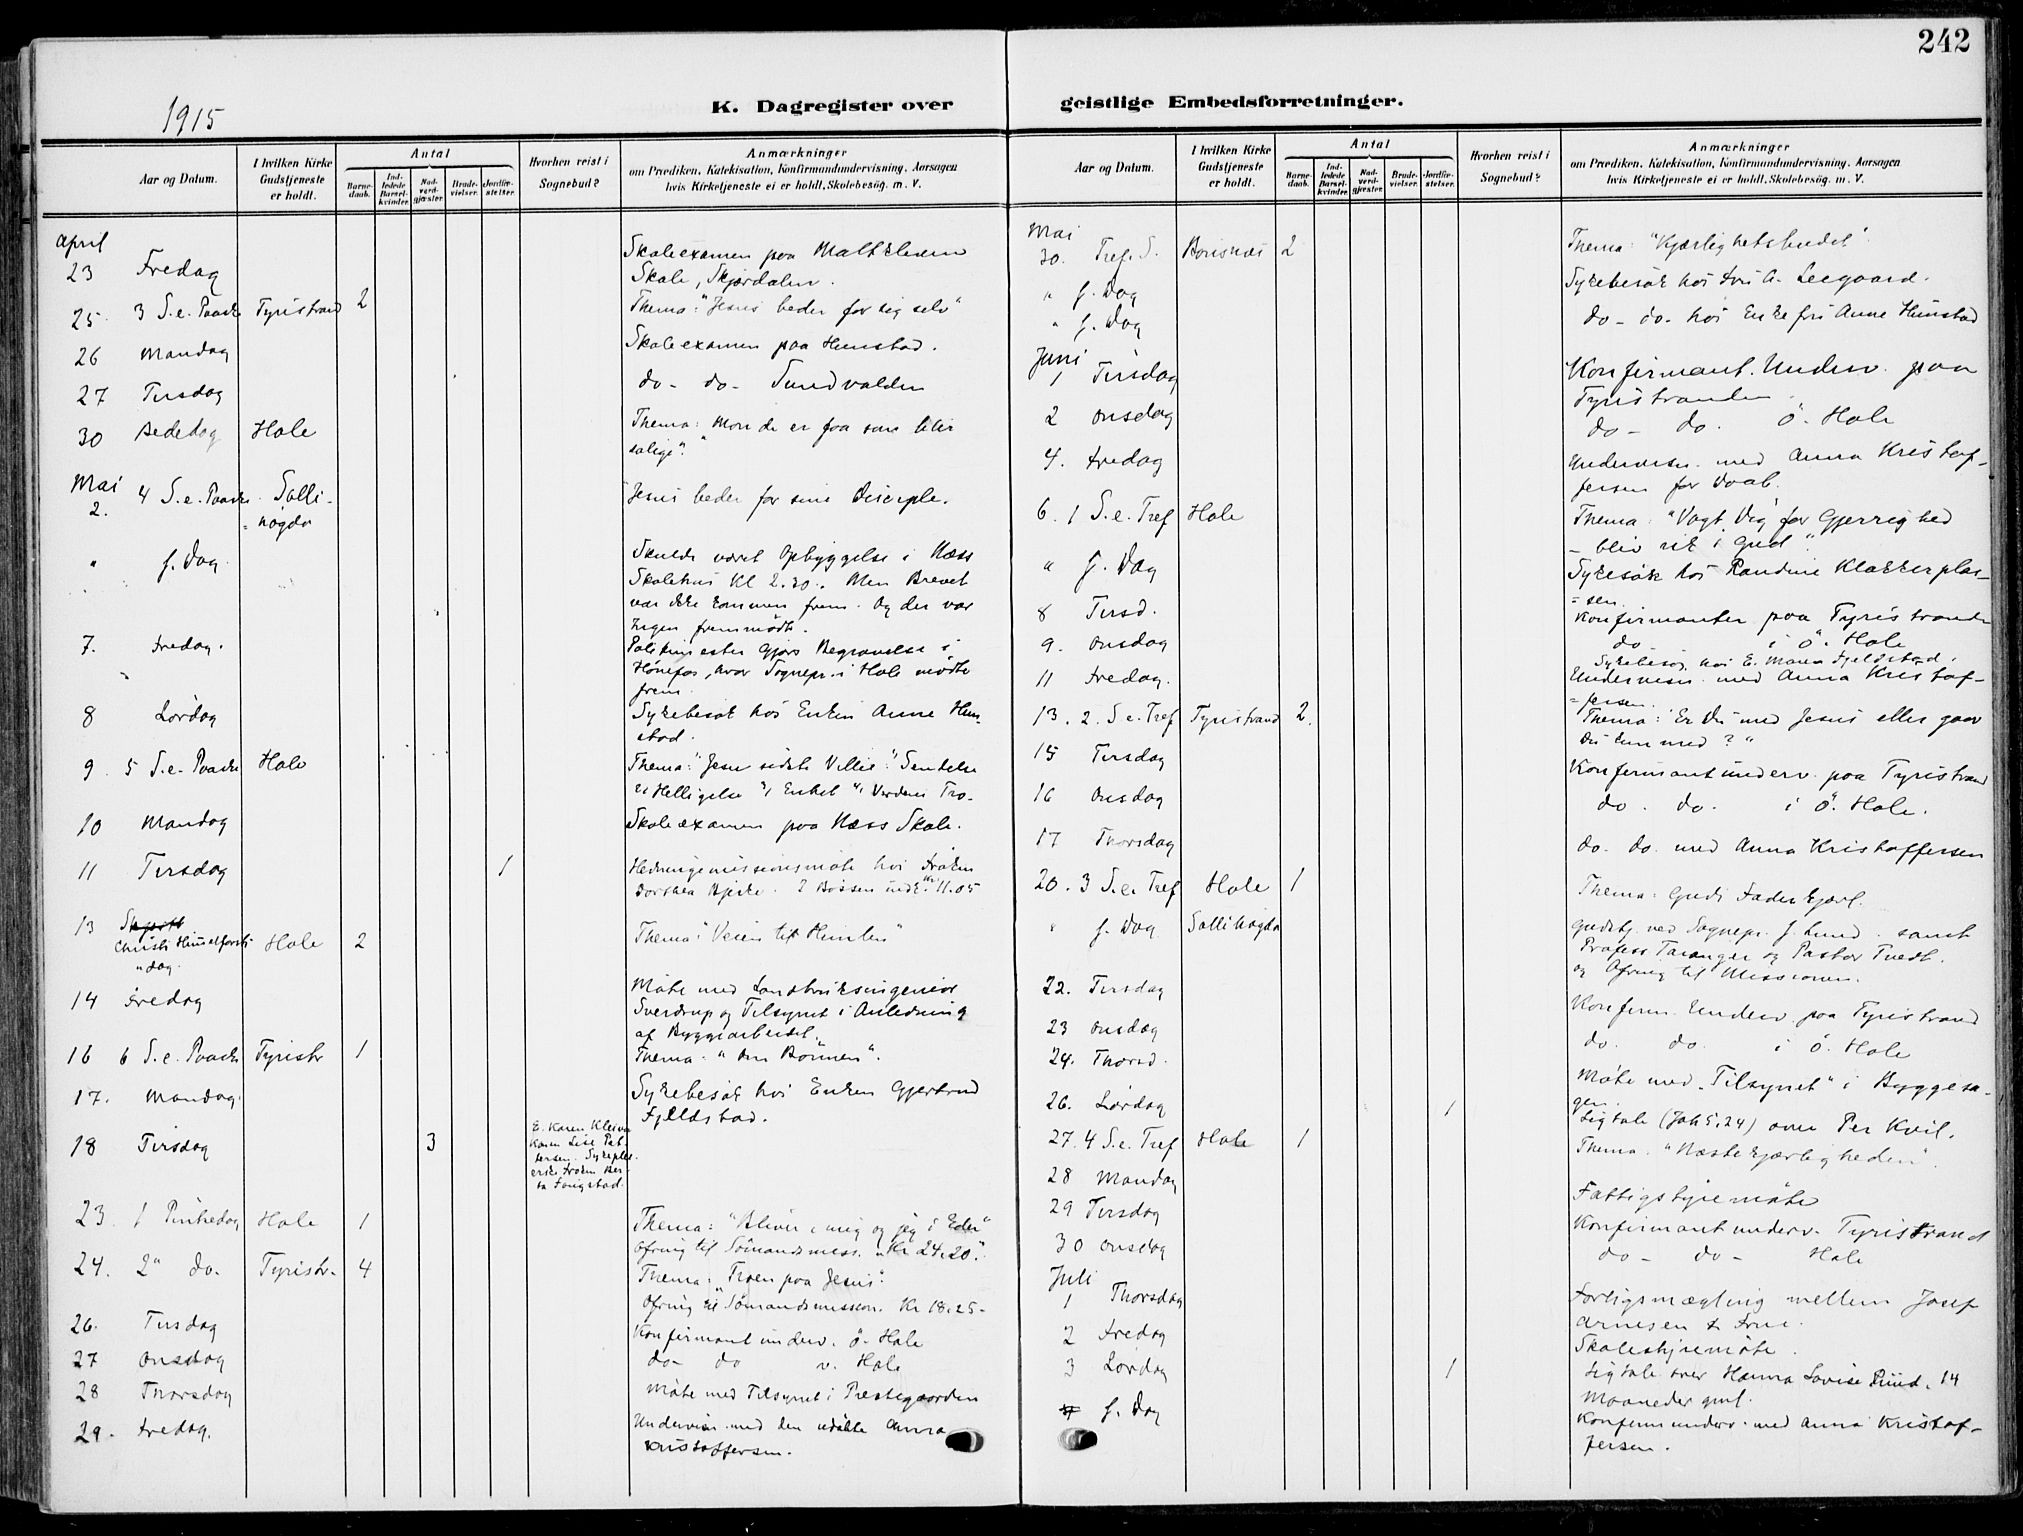 242
1915
K. Dagregister over geistlige Embedsforretninger.
Aar og Datum.
I hvilken Kirke Gudstjeneste er holdt.
Antal
Barnedaab.
Indledede Barselkvinder.
Nadverdgjæster.
Brudevielser.
Jordfæstelser.
Hvorhen reist i Sognebud?
Anmærkninger
om Prædiken, Katekisation, Konfirmandundervisning, Aarsagen
hvis Kirketjeneste ei er holdt, Skolebesøg. m. V.
April
23 Fredag Skoleexamen paa
Skole, Skjærdalen.
25. 3 S. e. Paaske Tyristrand 2 Thema: "Jesus beder for sig selv"
26 Mandag Skoleexamen paa Hunstad.
27 Tirsdag do - do - Sundvolden
30 Bededag Hole Thema: Mon de er faa som blir
salige?"
Mai
2. 4 S. e. Paaske Solli-
=høgda Jesus beder for sine Disciple.
" f. Dag Skulde været Opbyggelse i Næss
Skolehus Kl 2.30. Men Brevet
var ikke kommen frem. Og der var
Ingen fremmødt.
7. Fredag. Politimester Gjørs Begravelse i
Hønefos, hvor Sognepr. i Hole mødte
frem.
8 Lørdag Sykebesøk hos Enken Anne Hun-
stad.
9. 5 S. e. Paaske Hole Thema: "Jesu sidste Villie: Sendelse
Helligelse Enhet Verdens Tro.
10 Mandag Skoleexamen paa Næss Skole.
11 Tirsdag 1 Hedningemissionsmøte hos Frøken
Dorthea Bjerke. I Bøssen indk. Kr. 11.05
13 Christi Himmelfarts
"dag. Hole 2 Thema: "Veien til Himlen"
14 Fredag Møte med Landbruksingeniør
Sverdrup og Tilsynet i Anledning
af Byggearbeidet.
16 6 S. e. Paaske Tyristr 1 Thema: "Om Bønnen".
17. Mandag. Sykebesøk hos Enken Gjertrud
Fjeldstad.
18 Tirsdag 3 E. Karen Kleiva
Karen Lise Pet-
tersen. Sykeplei-
erske Frøken Ber-
ta
23. 1 Pinsedag Hole 1 Thema: "Bliver i mig og jeg i Eder"
Ofring til Sømandsmiss. Kr 24.20".
24. 2" do. Tyristr. 4 Thema: "Troen paa Jesus".
Ofring til Sømandsmission. Kr 18.25-
26. Tirsdag Konfirmantunderv. Ö. Hole
27 Onsdag do- do v. Hole
28 Thorsdag Møte med Tilsynet i Prestegaarden
29. Fredag. Undervisn. med den udøbte Anna
Kristoffersen.
K. Dagregister over geistlige Embedsforretninger.
Aar og Datum.
I hvilken Kirke Gudstjeneste er holdt.
Antal
Barnedaab.
Indledede Barselkvinder.
Nadverdgjæster.
Brudevielser.
Jordfæstelser.
Hvorhen reist i Sognebud?
Anmærkninger
om Prædiken, Katekisation, Konfirmandundervisning, Aarsagen
hvis Kirketjeneste ei er holdt, Skolebesøg. m. V.
Mai
30. Tref. S. Bønsnæs 2 Thema: "Kjærlighetsbudet".
" f. Dag Sykebesøk hos Fru A. Leegaard.
" f. Dag do - do - hos Enkefru Anne Hunstad
Juni
1 Tirsdag Konfirmant. Underv. paa
Tyristranden
2 Onsdag do - do. Ö. Hole
4. Fredag Undervisn. med Anna Kristof-
fersen før Daab.
6. 1 S. e. Tref Hole Thema: "Vogt Dig for Gjerrighed
- bliv rik i Gud".
" f. Dag Sykebesøk hos Randine Klækkerplas-
=sen.
8 Tirsd. Konfirmanter paa Tyristranden
9. Onsdag do i Ö. Hole
Sykebesøg hos E. Maria Fjeldstad.
11 Fredag. Undervisn. med Anna Kristof-
=fersen.
13. 2. S. e. Tref Tyristrand 2. Thema: "Er Du med Jesus eller gaar
Du kun med?"
15 Tirsdag Konfirmantunderv. paa Tyristrand
16 Onsdag do. do. i Ö. Hole.
17 Thorsdag do. do. med Anna Kristoffersen
20. 3 S. e. Tref Hole 1 Thema: Guds Faderkjærl.
" f. Dag Sollihøgda Gudstj. ved Sognepr. J. Lund. samt
Profess. Taranger og Pastor Tvedt.
og Ofring til Missionen.
22. Tirsdag Konfirm. Underv paa Tyristrand
23 Onsdag do. do. i Ö. Hole
24. Thorsd. Møte med "Tilsynet" i Byggesa-
gen.
26. Lørdag 1 Ligtale (Joh 5.24) over Per Kvil.
27. 4 S. e. Tref Hole 1 Thema. "Næstekjærligheden".
28 Mandag Fattigstyremøte
29 Tirsdag Konfirmantunderv. Tyristrand
30 Onsdag do - do - Hole
Juli
1 Thorsdag Forligsmægling mellem Josef
Arnesen & Frue.
2 Fredag Skolestyremøte.
3 Lørdag 1 Ligtale over Hanna Lovise Ruud. 14
Maaneder gml.
f. Dag Konfirmunderv. med Anna Kristof-
fersen.